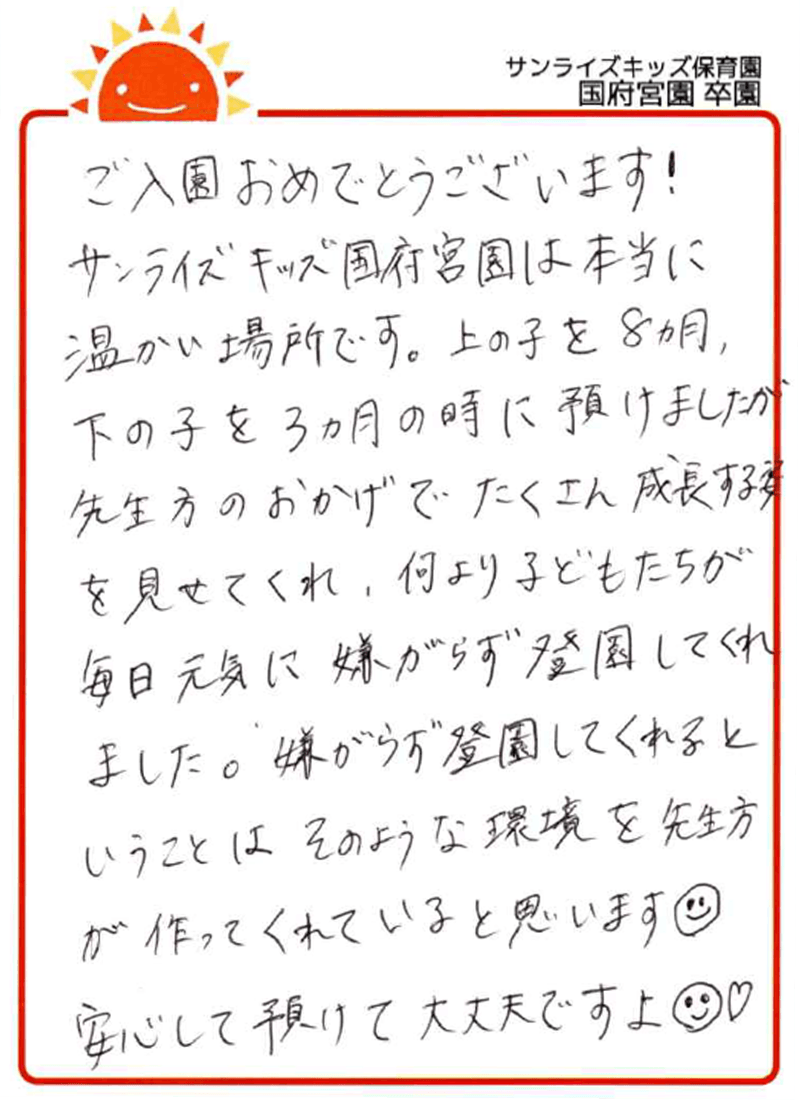 サンライズキッズ保育園
国府宮園 卒園
ご入園おめでとうございます!
サンライズキッズ国府宮園は本当に
温かい場所です。上の子を8ヵ月,
下の子を3ヵ月の時に預けましたが
先生方のおかげで たくさん成長する姿
を見せてくれ、何より子どもたちが
毎日元気に嫌がらず登園してくれ
ました。嫌がらず登園してくれると
いうことは そのような環境を先生方
が作ってくれていると思います☺
安心して預けて大丈夫ですよ☺♡